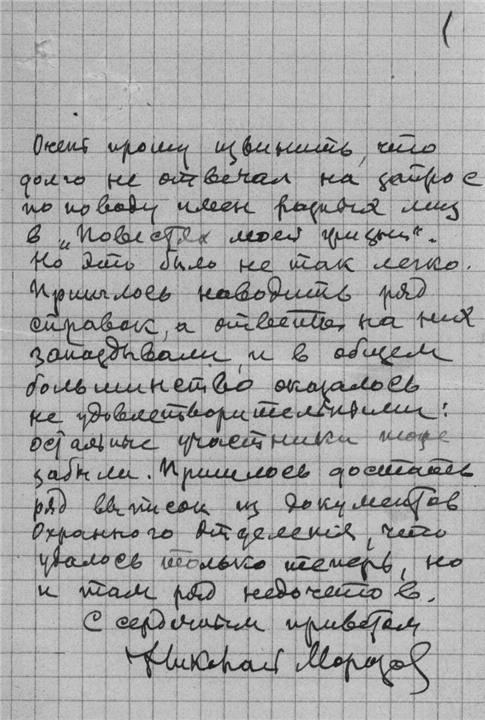 Очень прошу извинить, что
долго не отвечал на запрос
по поводу имен разных лиц
в „Повестях моей жизни".
Но это было не так легко.
Пришлось наводить ряд
справок, а ответы на них
запаздывали, и в общем
большинство оказалось
не удовлетворительными:
остальные участники тоже
забыли. Пришлось достать
ряд выписок из документов
Охранного Отделения, что
удалось только теперь, но
и там ряд недочетов.
С сердечным приветом
Николай Морозов